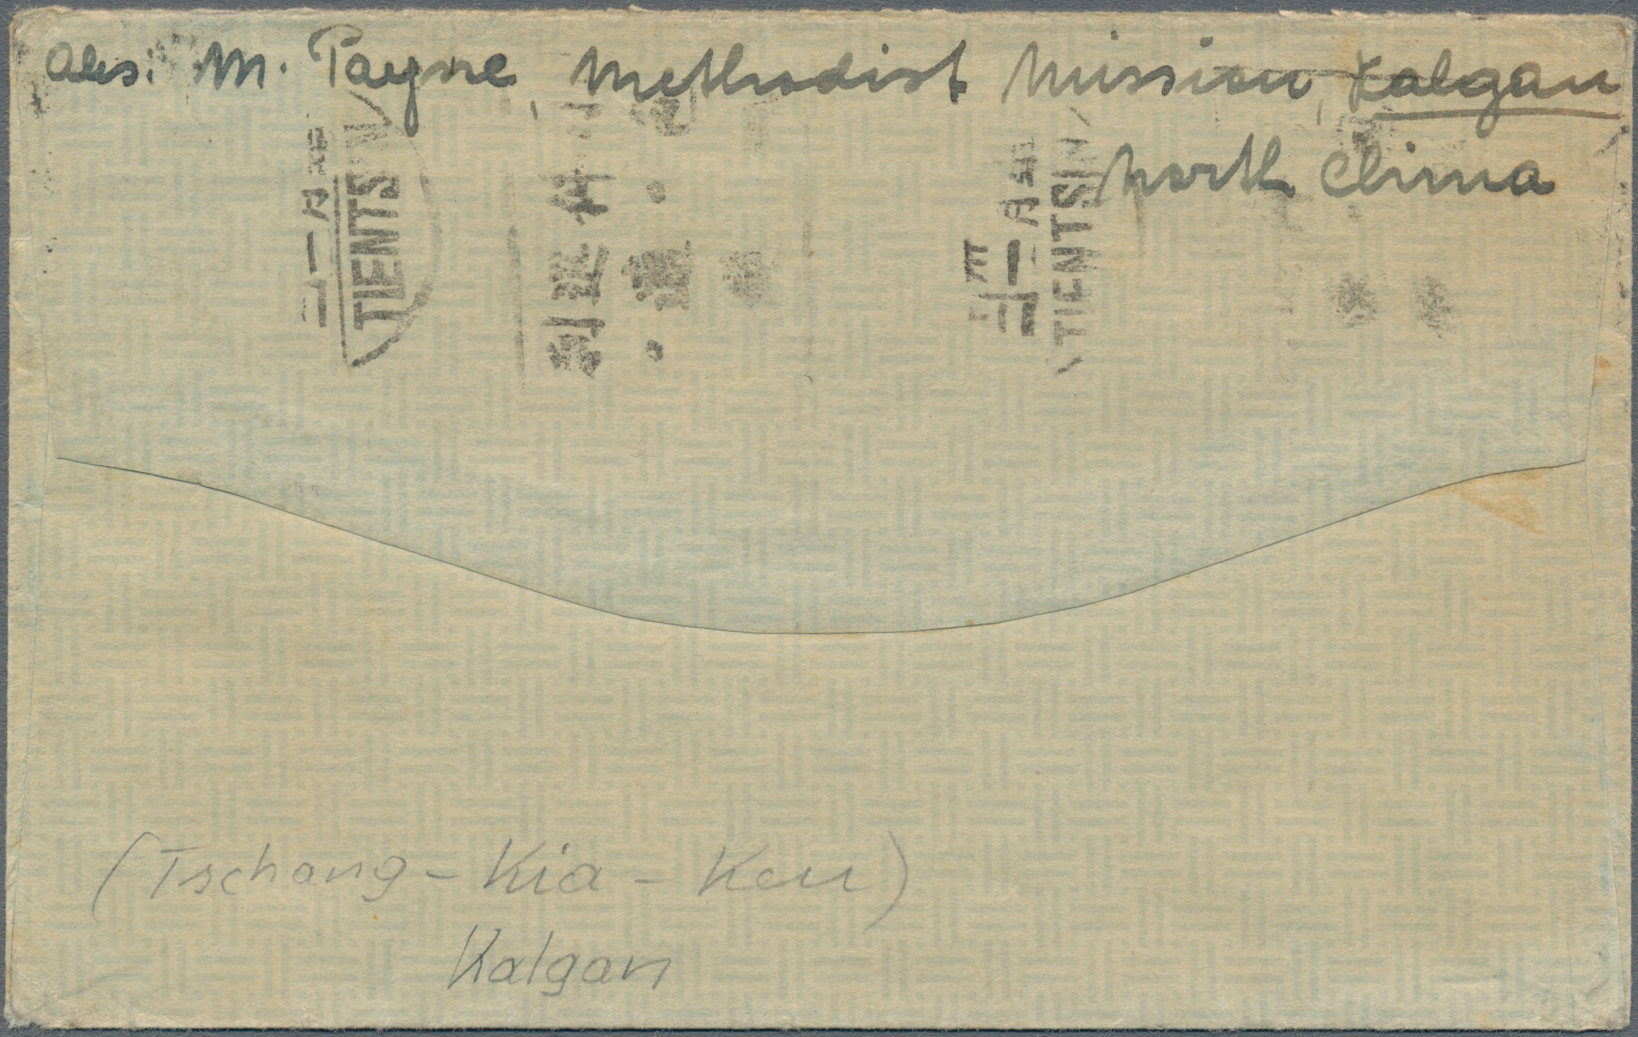 Abs. M. Payne, Methodist Mission, Kalgan
North China
TIENTSIN
TIENTSIN
(Tschang-Kia-Kou)
Kalgan